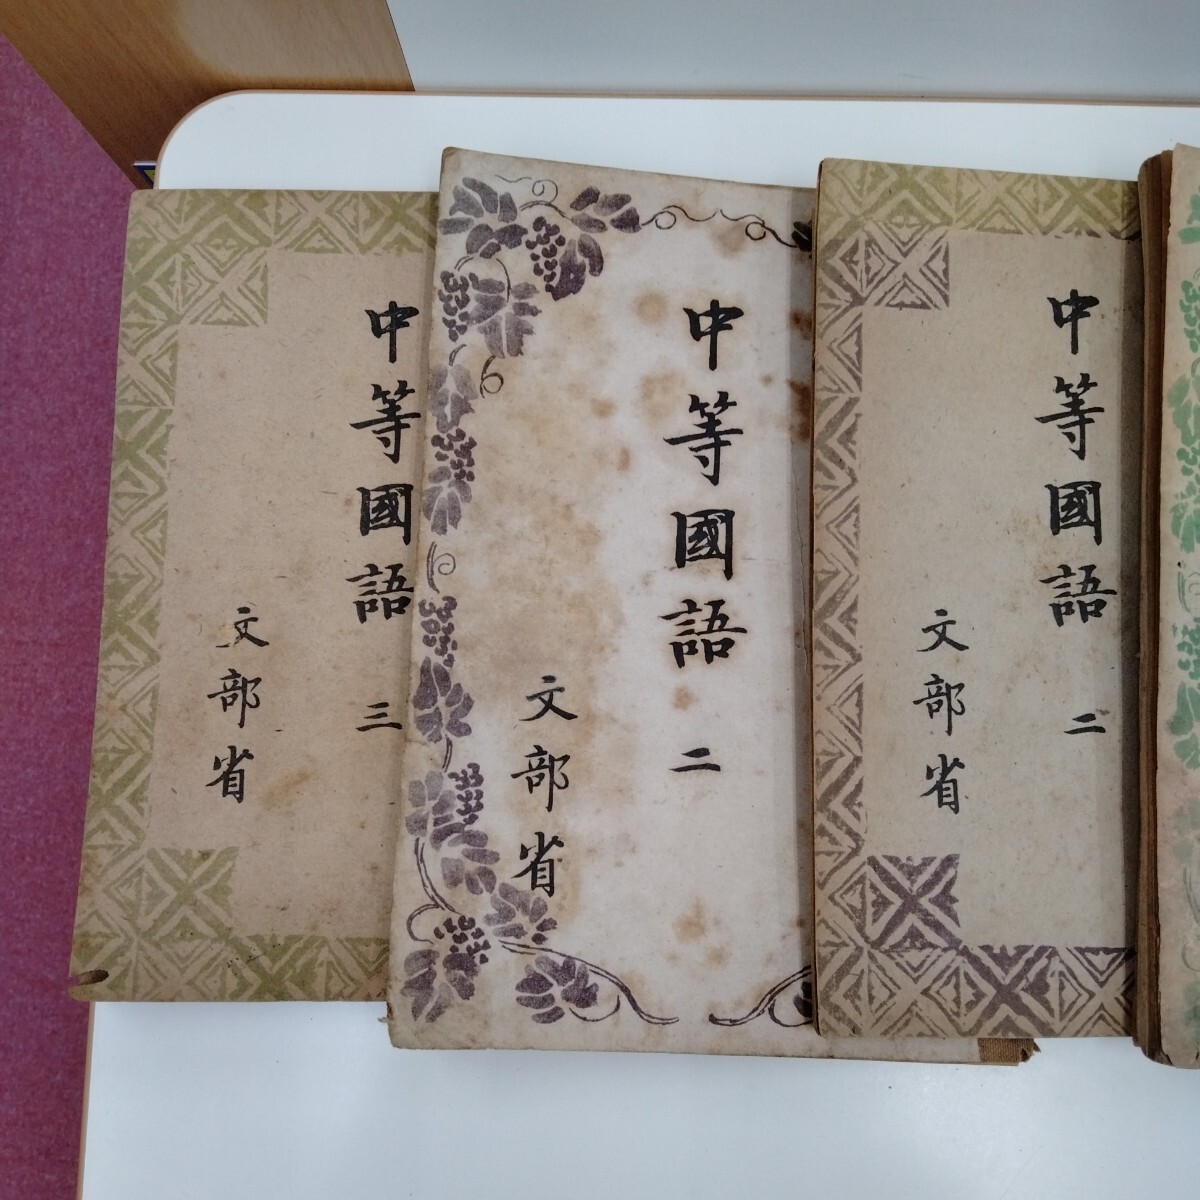 中等國語 三
文部省
中等國語 二
文部省
中等國語 二
文部省